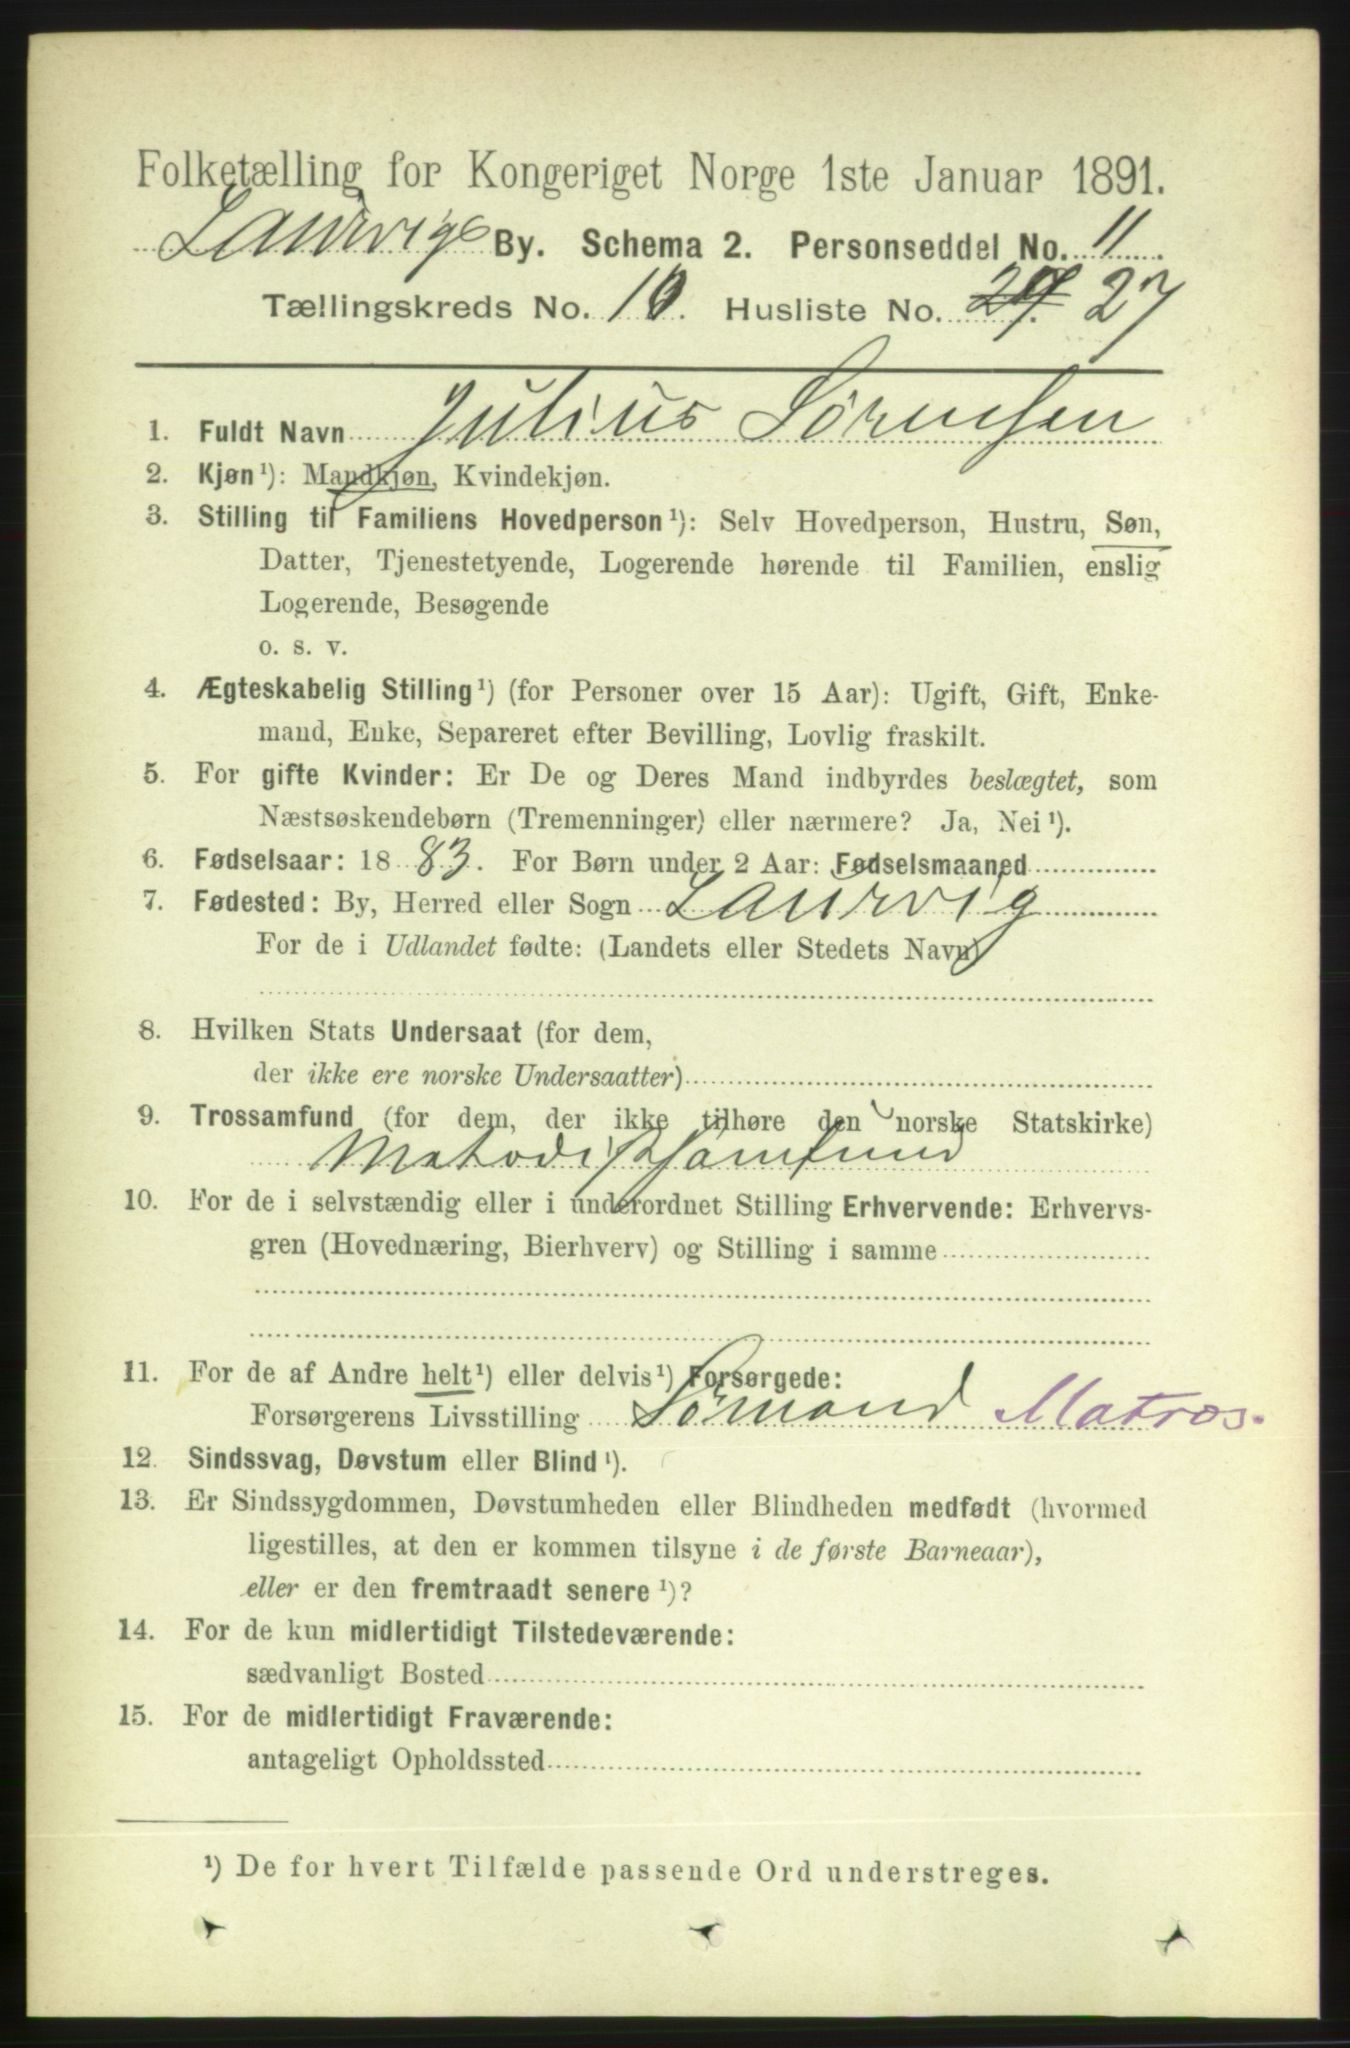 Folketælling for Kongeriget Norge 1ste Januar 1891.
Laurvigs By. Schema 2. Personseddel No. 11
Tællingskreds No. 10. Husliste No. 29. 27
1. Fuldt Navn Julius Sörensen
2. Kjøn ¹): Mandkjøn, Kvindekjøn.
3. Stilling til Familiens Hovedperson ¹): Selv Hovedperson, Hustru, Søn,
Datter, Tjenestetyende, Logerende hørende til Familien, enslig
Logerende, Besøgende
o. s. v.
4. Ægteskabelig Stilling ¹) (for Personer over 15 Aar): Ugift, Gift, Enke-
mand, Enke, Separeret efter Bevilling, Lovlig fraskilt.
5. For gifte Kvinder: Er De og Deres Mand indbyrdes beslægtet, som
Næstsøskendebørn (Tremenninger) eller nærmere? Ja, Nei ¹).
6. Fødselsaar: 1883. For Børn under 2 Aar: Fødselsmaaned
7. Fødested: By, Herred eller Sogn Laurvig
For de i Udlandet fødte: (Landets eller Stedets Navn)
8. Hvilken Stats Undersaat (for dem,
der ikke ere norske Undersaatter)
9. Trossamfund (for dem, der ikke tilhøre den norske Statskirke)
Metodistsamfund
10. For de i selvstændig eller i underordnet Stilling Erhvervende: Erhvervs-
gren (Hovednæring, Bierhverv) og Stilling i samme
11. For de af Andre helt ¹) eller delvis ¹) Forsørgede:
Forsørgerens Livsstilling Sömand Matros.
12. Sindssvag, Døvstum eller Blind ¹).
13. Er Sindssygdommen, Døvstumheden eller Blindheden medfødt (hvormed
ligestilles, at den er kommen tilsyne i de første Barneaar),
eller er den fremtraadt senere ¹)?
14. For de kun midlertidigt Tilstedeværende:
sædvanligt Bosted
15. For de midlertidigt Fraværende:
antageligt Opholdssted
¹) De for hvert Tilfælde passende Ord understreges.